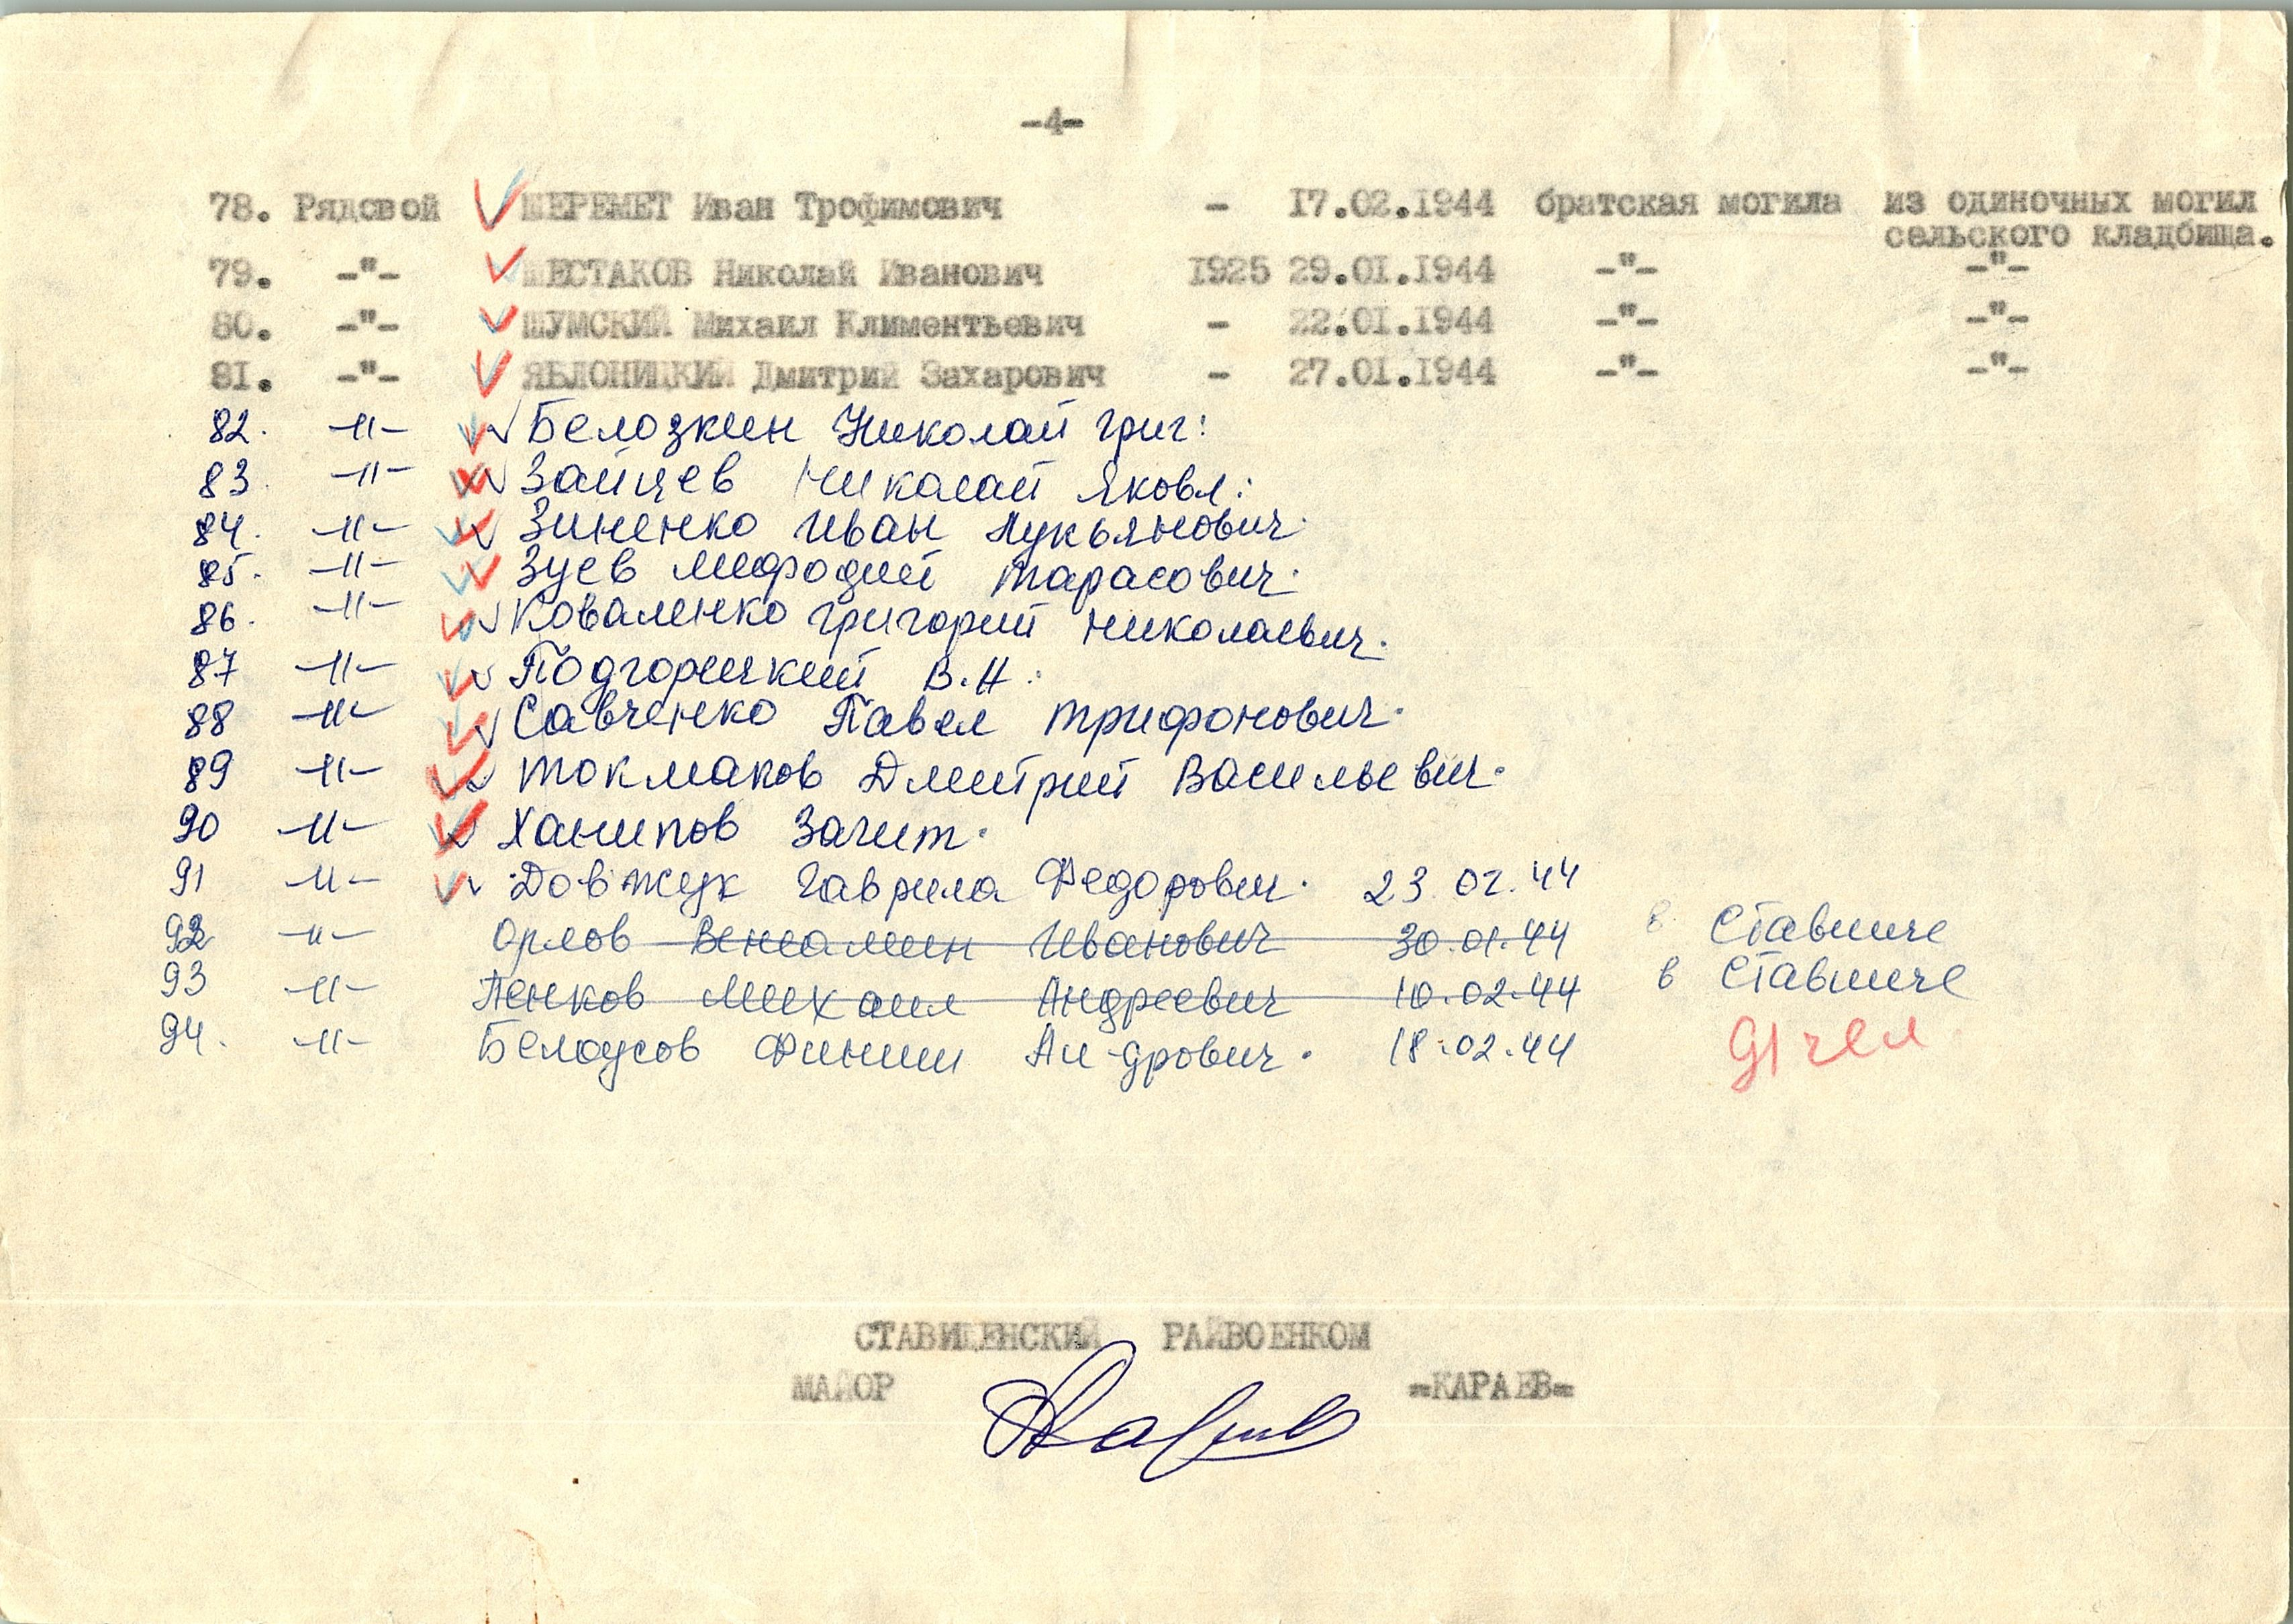 -4-
78. Рядовой ШЕРЕМЕТ Иван Трофимович - 17.02.1944 братская могила из одиночных могил
сельского кладбища.
79. -"- ШЕСТАКОВ Николай Иванович 1925 29.01.1944 -"- -"-
80. -"- ШУМСКИЙ Михаил Климентьевич - 22.01.1944 -"- -"-
81. -"- ЯБЛОНИЦКИЙ Дмитрий Захарович - 27.01.1944 -"- -"-
82. -"- Белозкин Николай Григ:
83. -"- Зайцев Николай Яковл:
84. -"- Зиненко Иван Лукьянович.
85. -"- Зуев Мефодий Тарасович.
86. -"- Коваленко Григорий Николаевич.
87 -"- Подгорицкий В.Н.
88 -"- Савченко Павел Трифонович.
89 -"- Токмаков Дмитрий Васильевич.
90 -"- Ханипов Загит.
91 -"- Довжук Гаврила Федорович. 23.02.44
92 -"- Орлов Вениамин Иванович 30.01.44 в Ставище
93 -"- Пенков Михаил Андреевич 10.02.44 в Ставище
94. -"- Белоусов 18.02.44 91 чел
СТАВИЩЕНСКИЙ РАЙВОЕНКОМ
МАЙОР -КАРАЕВ-